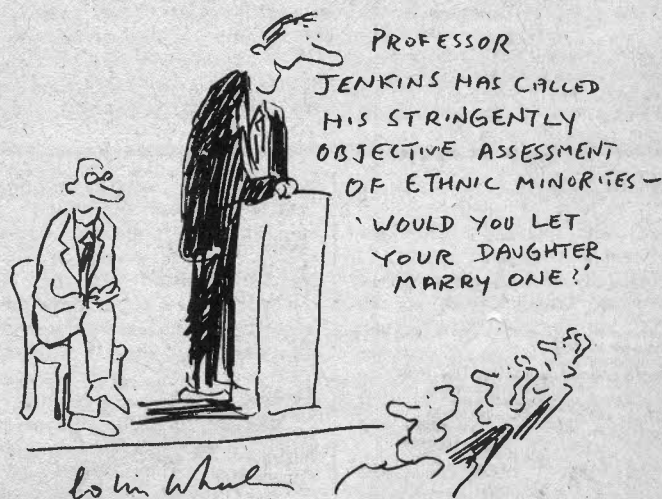 PROFESSOR
JENKINS HAS CALLED
HIS STRINGENTLY
OBJECTIVE ASSESSMENT
OF ETHNIC MINORITES -
'WOULD YOU LET
YOUR DAUGHTER
MARRY ONE?'
Colin Wheeler